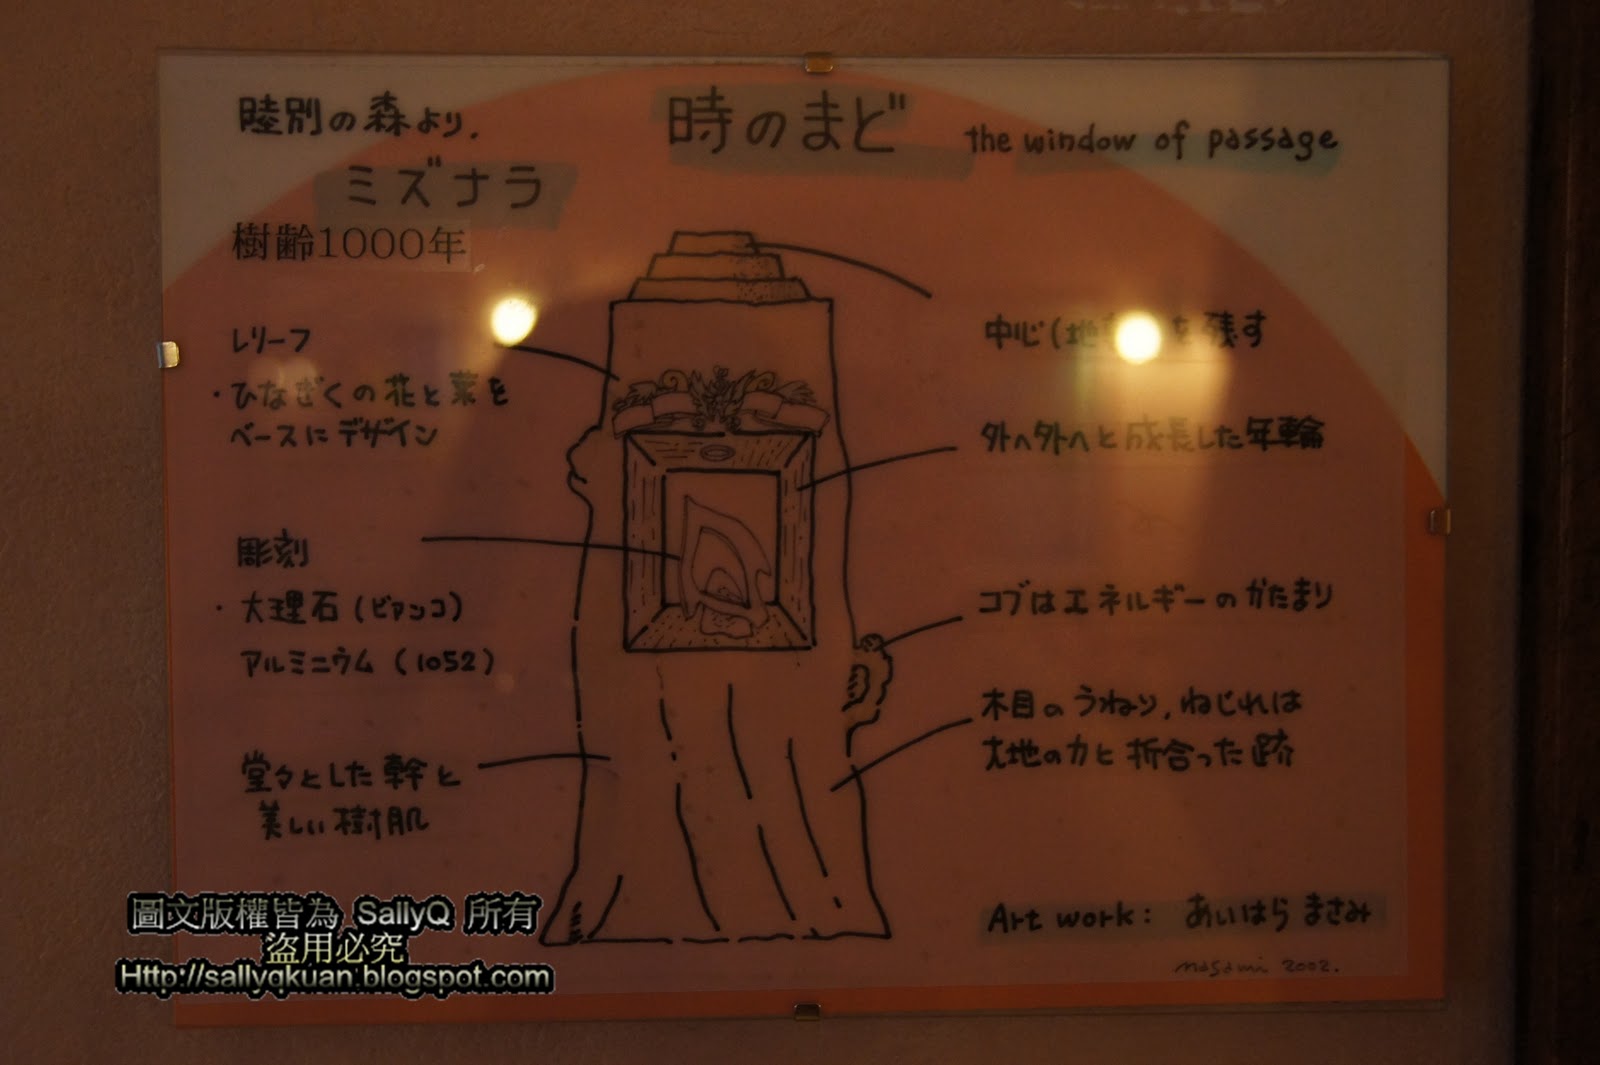 陸別の森より.
ミズナラ
樹齢1000年
時のまど
the window of passage
レリーフ
・ひなぎくの花と葉を
ベースにデザイン
彫刻
・大理石(ビアンコ)
アルミニウム(1052)
堂々とした幹と
美しい樹肌
中心(地 を残す
外へ外へと成長した年輪
コブはエネルギーのかたまり
木目のうねり,ねじれは
大地の力と折合った跡
Art work: あいはらまさみ
masami 2002.
圖文版權皆為 SallyQ 所有
盜用必究
Http://sallyqkuan.blogspot.com